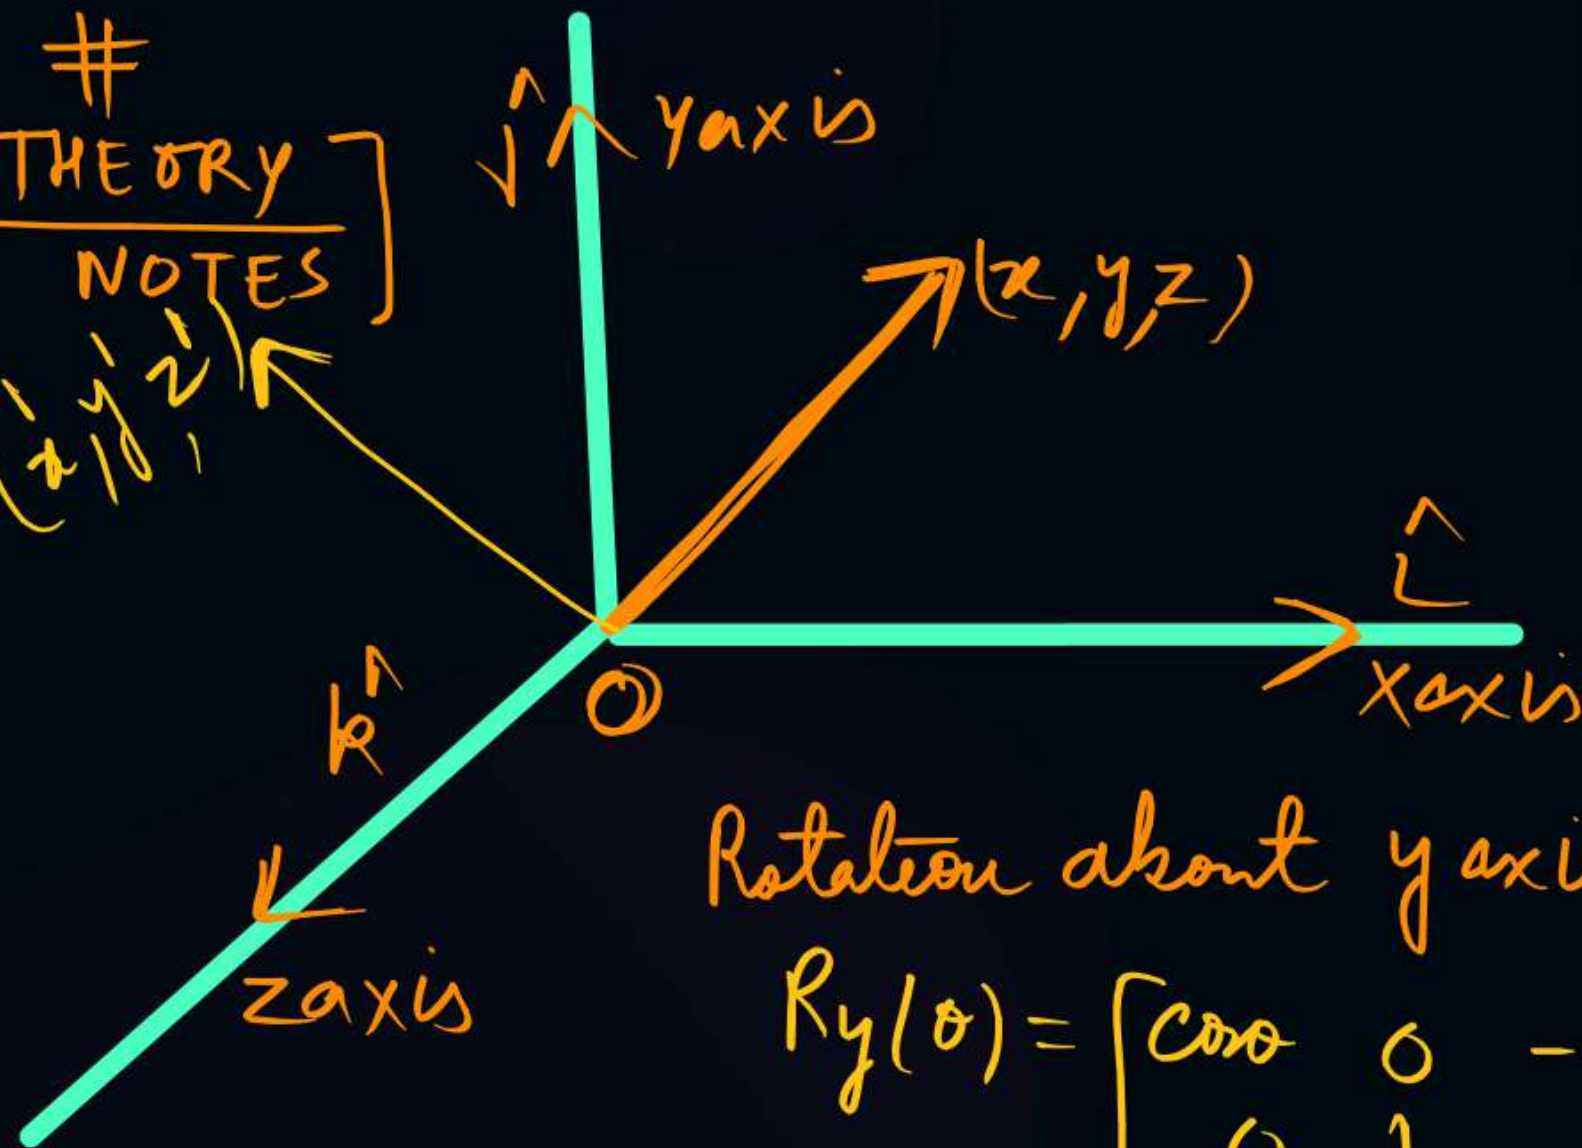 #
THEORY ]
NOTES
(x', y', z')
ĵ
y axis
(x, y, z)
î
x axis
O
k̂
z axis
Rotation about y axi
Ry(θ) = [ cosθ 0 -
0 1